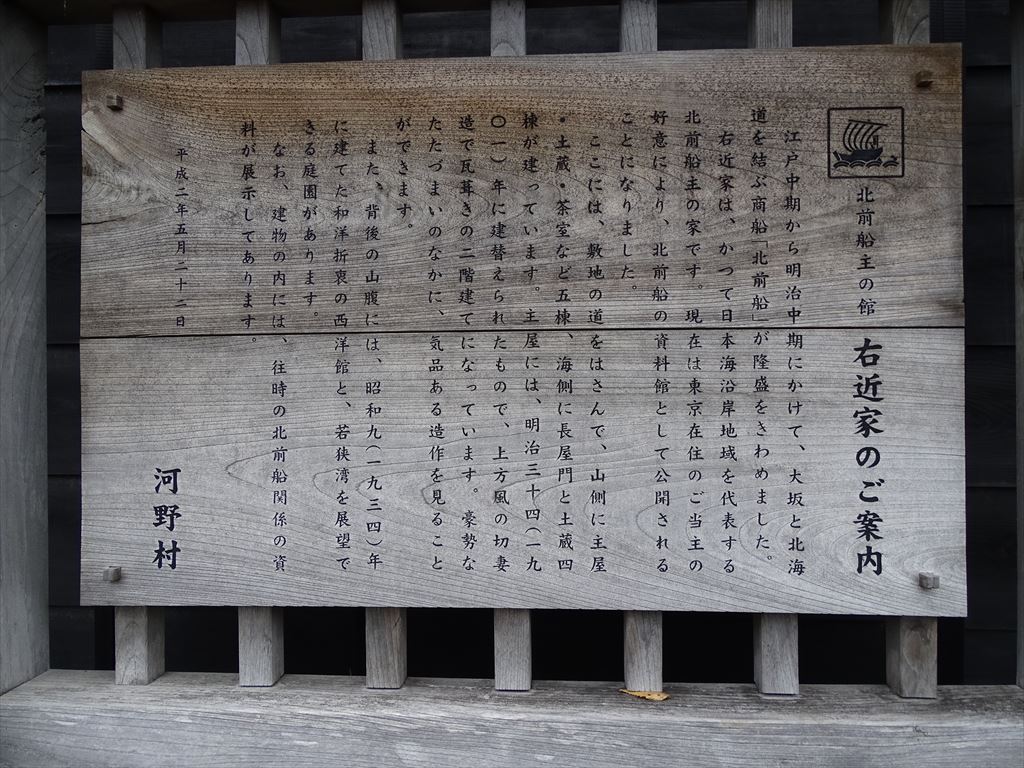 北前船主の館 右近家のご案内
江戸中期から明治中期にかけて、大坂と北海
道を結ぶ商船「北前船」が隆盛をきわめました。
右近家は、かつて日本海沿岸地域を代表する
北前船主の家です。現在は東京在住のご当主の
好意により、北前船の資料館として公開される
ことになりました。
ここには、敷地の道をはさんで、山側に主屋
・土蔵・茶室など五棟、海側に長屋門と土蔵四
棟が建っています。主屋には、明治三十四(一九
〇一)年に建替えられたもので、上方風の切妻
造で瓦葺きの二階建てになっています。豪勢な
たたづまいのなかに、気品ある造作を見ること
ができます。
また、背後の山腹には、昭和九(一九三四)年
に建てた和洋折衷の西洋館と、若狭湾を展望で
きる庭園があります。
なお、建物の内には、往時の北前船関係の資
料が展示してあります。
平成二年五月二十二日
河野村